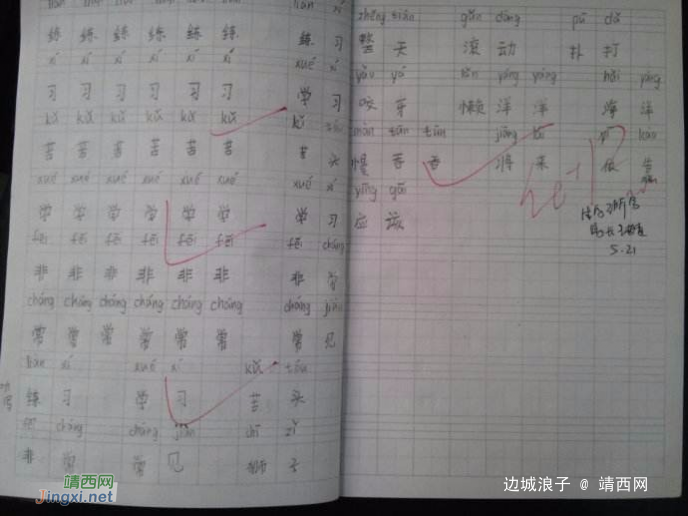 练 练 练 练 练 练 练 习
xí xí xí xí xí xí xué xí
习 习 习 习 习 习 学 习
kǔ kǔ kǔ kǔ kǔ kǔ kǔ tóu
苦 苦 苦 苦 苦 苦 苦 头
xué xué xué xué xué xué xué xí
学 学 学 学 学 学 学 习
fēi fēi fēi fēi fēi fēi fēi cháng
非 非 非 非 非 非 非 常
cháng cháng cháng cháng cháng cháng cháng jiàn
常 常 常 常 常 常 常 见
liàn xí xué xí kǔ tóu
练 习 学 习 苦 头
fēi cháng cháng jiàn shī zi
非 常 常 见 狮 子
zhěng tiān gǔn dòng pū dǎ
整 天 滚 动 扑 打
yǎo yá lǎn yáng yáng hǎi yáng
咬 牙 懒 洋 洋 海 洋
màn tūn tūn jiāng lái
慢 吞 吞 将 来
yīng gāi
应 该
5.21
靖西网
Jingxi.net
边城浪子 @ 靖西网